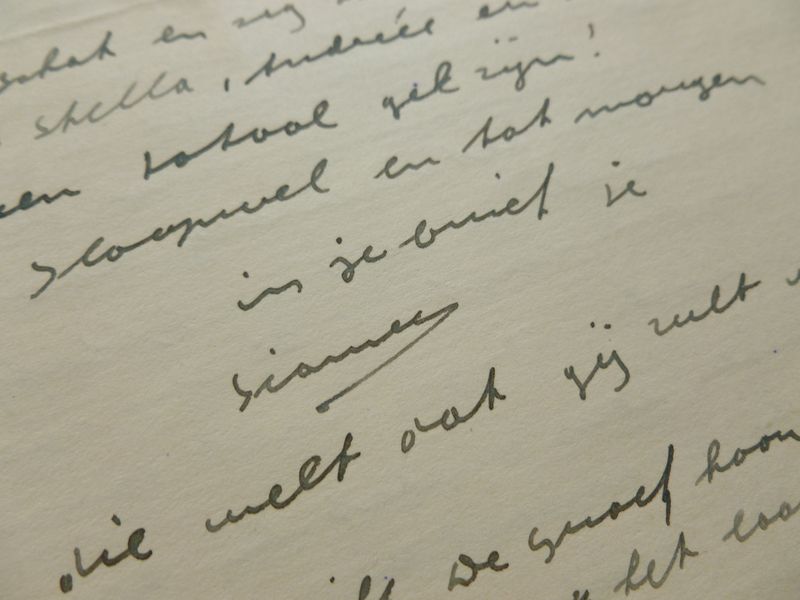 schat en zeg
Stella, Andrée en
een totaal gek zijn!
Slaapwel en tot morgen
in je brief je
die welt dat gij zult
De Graef
het